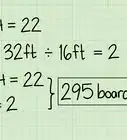 = 22
32ft ÷ 16ft = 2
= 22
= 2
295 board